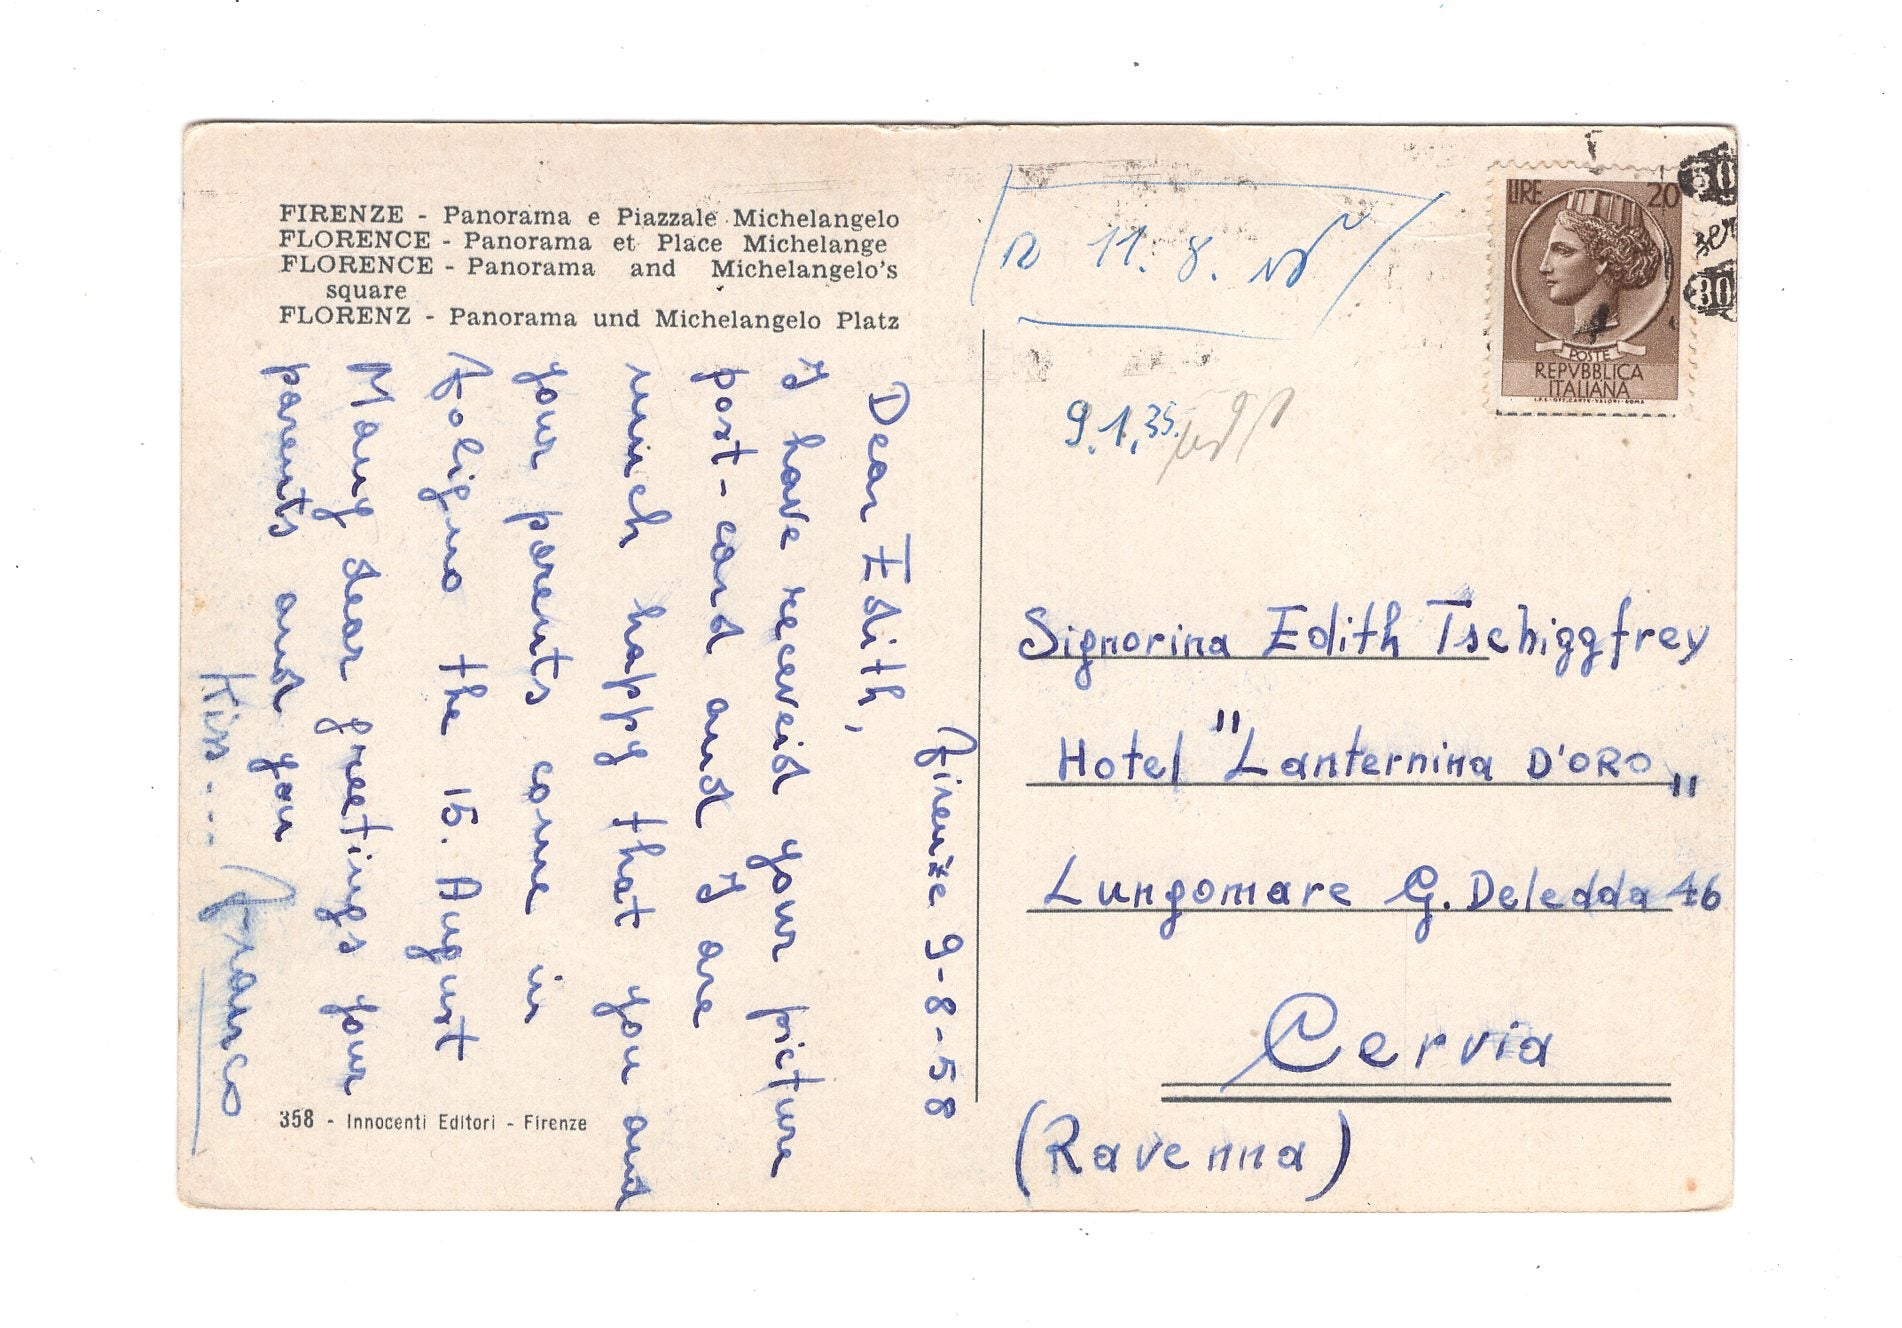 FIRENZE - Panorama e Piazzale Michelangelo
FLORENCE - Panorama et Place Michelange
FLORENCE - Panorama and Michelangelo's
square
FLORENZ - Panorama und Michelangelo Platz
Firenze 9-8-58
Dear Edith,
I have receveid your picture
post-card and I are
much happy that you and
your parents come in
Foligno the 15. August
Many dear greetings your
parents and you
Kiss... Franco
358 - Innocenti Editori - Firenze
11. 8.
9.1.35.
LIRE 20
POSTE
REPVBBLICA
ITALIANA
I.P.S.-OFF.CARTE-VALORI-ROMA
Signorina Edith Tschiggfrey
Hotel "Lanternina D'ORO"
Lungomare G. Deledda 46
Cervia
(Ravenna)